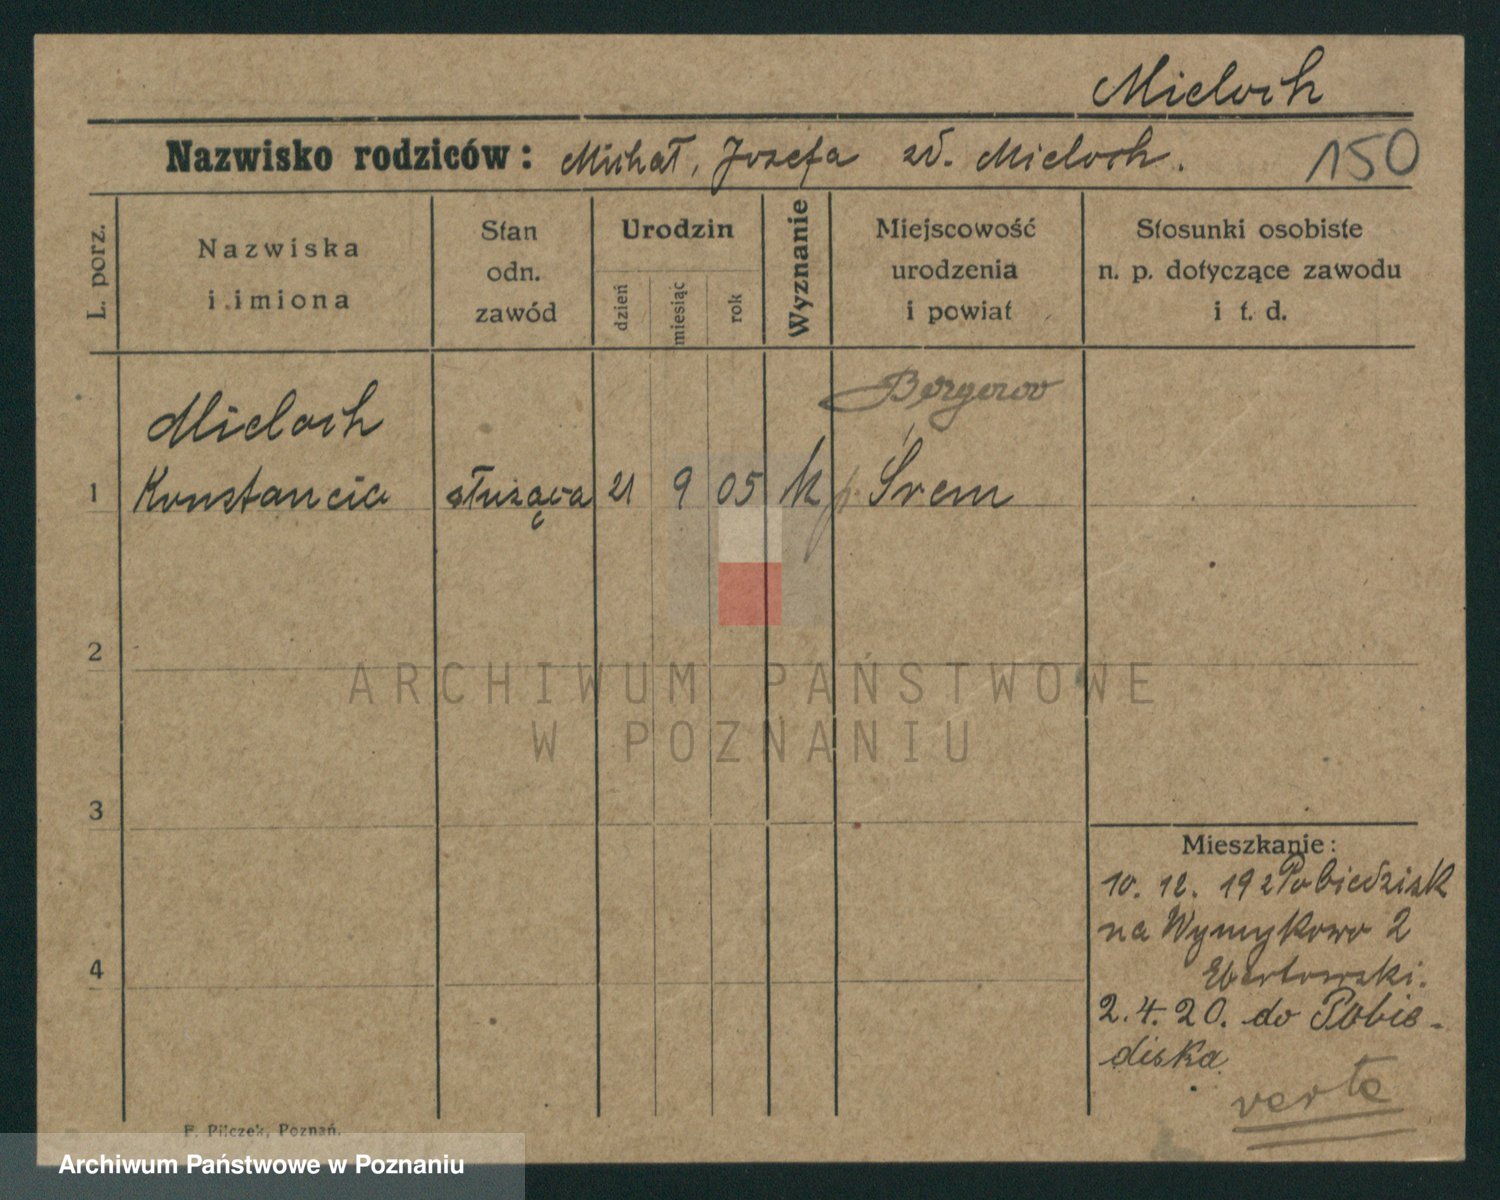 Mieloch
Nazwisko rodziców: Michał, Józefa zd. Mieloch.
150
L. porz.
Nazwiska
i imiona
Stan
odn.
zawód
Urodzin
dzień
miesiąc
rok
Wyznanie
Miejscowość
urodzenia
i powiat
Stosunki osobiste
n. p. dotyczące zawodu
i t. d.
Bergerov
Mieloch
1 Konstancia służąca 21 9 05 k p. Śrem
2
ARCHIWUM PAŃSTWOWE
W POZNANIU
3
4
Mieszkanie:
10. 12. 192 Pobiedzisk
na Wymykowo 2
2.4.20. do Pobie-
diska
verte
F. Pilczek, Poznań.
Archiwum Państwowe w Poznaniu